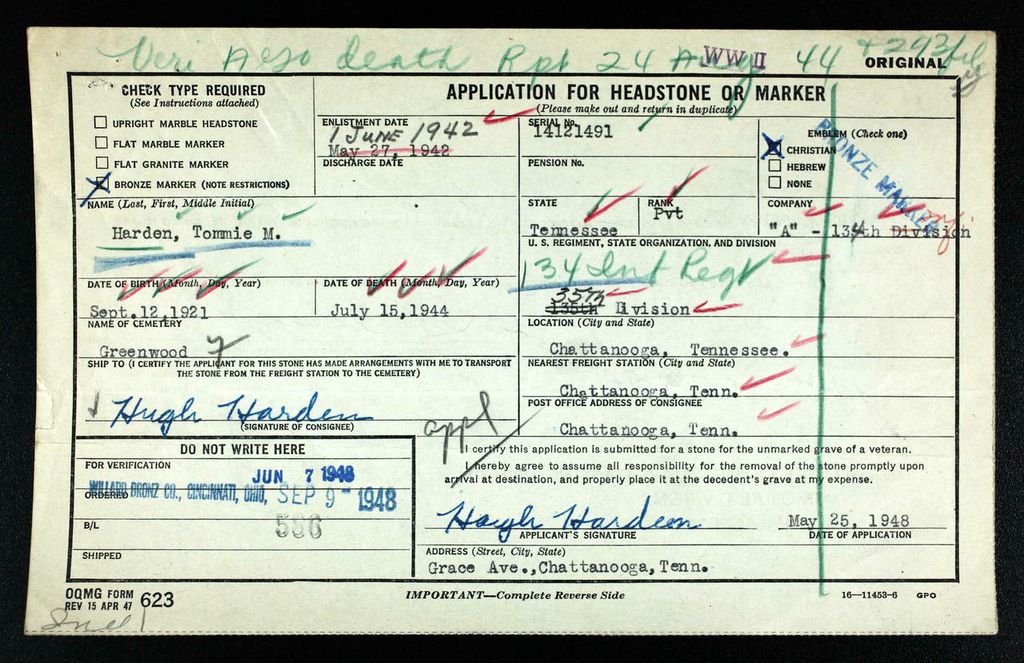 Veri Also death Rpt 24 Aug 44
WW II
ORIGINAL
CHECK TYPE REQUIRED
(See Instructions attached)
UPRIGHT MARBLE HEADSTONE
FLAT MARBLE MARKER
FLAT GRANITE MARKER
X BRONZE MARKER (NOTE RESTRICTIONS)
APPLICATION FOR HEADSTONE OR MARKER
(Please make out and return in duplicate)
ENLISTMENT DATE
1 JUNE 1942
May 27, 1942
DISCHARGE DATE
SERIAL No.
14121491
PENSION No.
EMBLEM (Check one)
X CHRISTIAN
HEBREW
NONE
BRONZE MARKER
STATE
Tennessee
RANK
Pvt
COMPANY
"A" - 134th Division
NAME (Last, First, Middle Initial)
Harden, Tommie M.
U. S. REGIMENT, STATE ORGANIZATION, AND DIVISION
134 Inf Regt
35th
135th Division
DATE OF BIRTH (Month, Day, Year)
Sept.12,1921
DATE OF DEATH (Month, Day, Year)
July 15,1944
NAME OF CEMETERY
Greenwood
LOCATION (City and State)
Chattanooga, Tennessee.
SHIP TO (I CERTIFY THE APPLICANT FOR THIS STONE HAS MADE ARRANGEMENTS WITH ME TO TRANSPORT
THE STONE FROM THE FREIGHT STATION TO THE CEMETERY)
NEAREST FREIGHT STATION (City and State)
Chattanooga, Tenn.
Hugh Harden
(SIGNATURE OF CONSIGNEE)
POST OFFICE ADDRESS OF CONSIGNEE
Chattanooga, Tenn.
appl
DO NOT WRITE HERE
FOR VERIFICATION
JUN 7 1948
ORDERED
WILLARD BRONZ CO., CINCINNATI, OHIO, SEP 9 - 1948
586
B/L
SHIPPED
I certify this application is submitted for a stone for the unmarked grave of a veteran.
I hereby agree to assume all responsibility for the removal of the stone promptly upon
arrival at destination, and properly place it at the decedent's grave at my expense.
Hugh Harden
APPLICANT'S SIGNATURE
May 25, 1948
DATE OF APPLICATION
ADDRESS (Street, City, State)
Grace Ave.,Chattanooga,Tenn.
OQMG FORM
REV 15 APR 47 623
IMPORTANT—Complete Reverse Side
16—11453-6 GPO